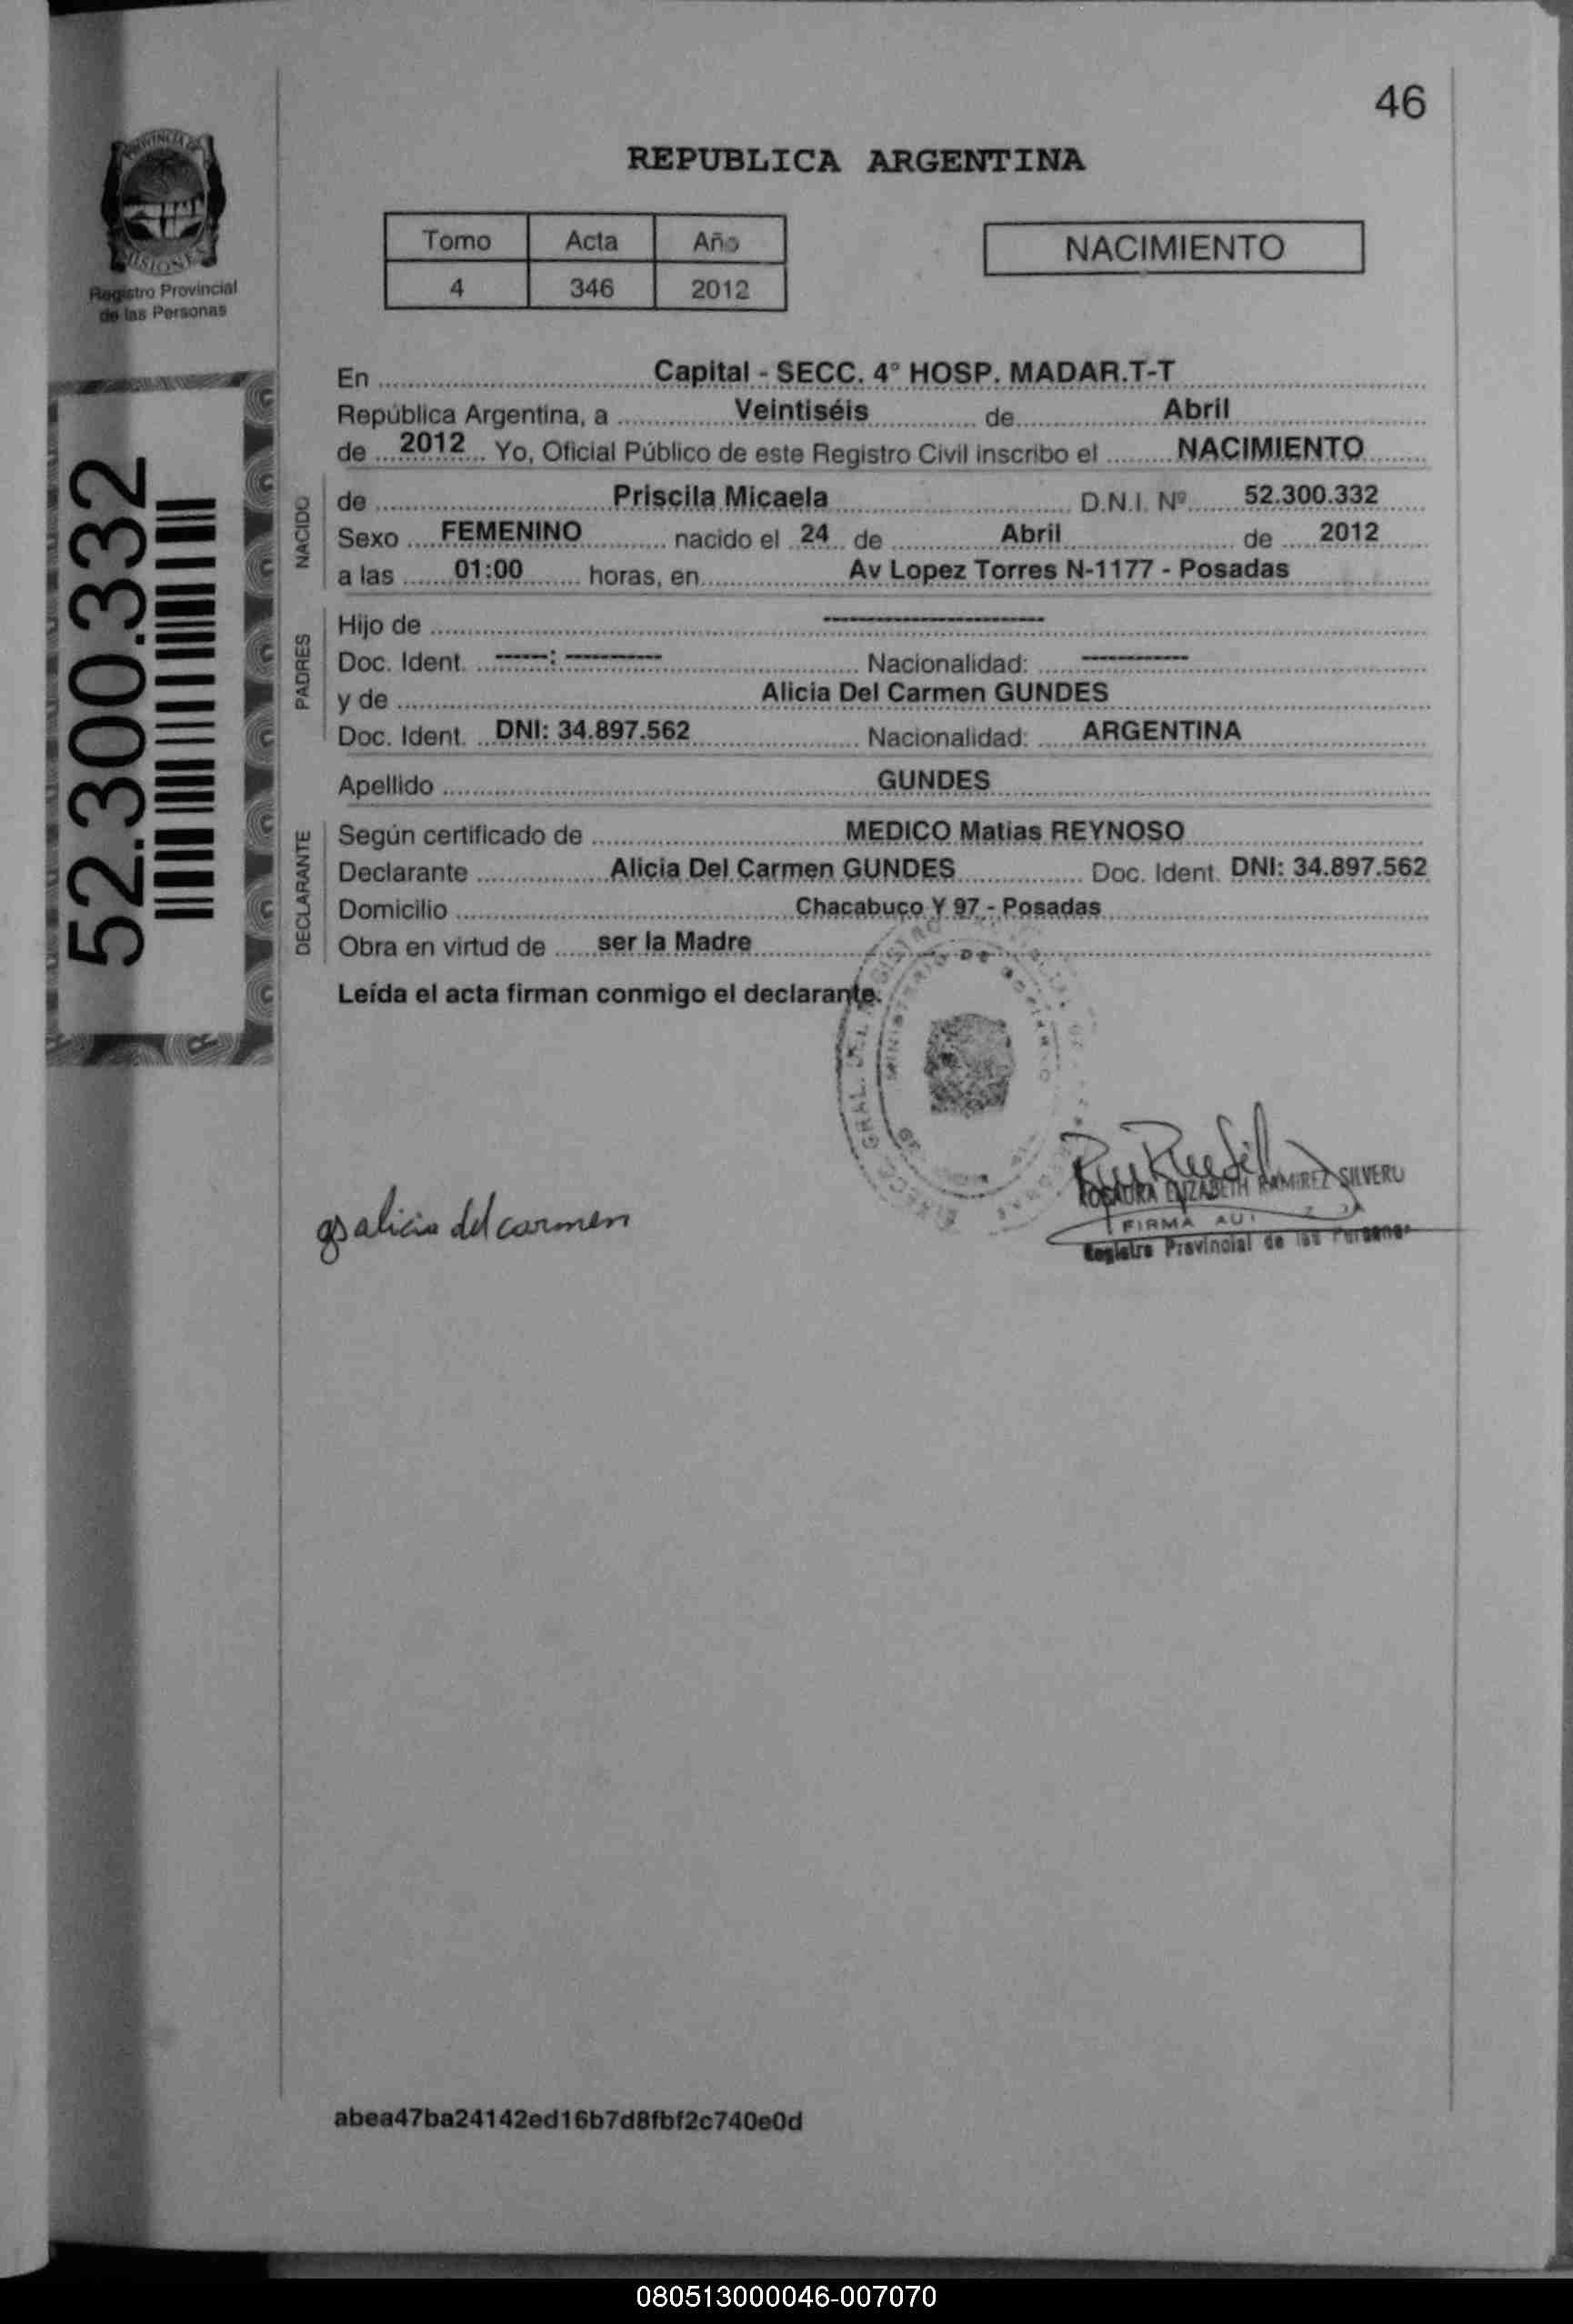 46
PROVINCIA DE
MISIONES
Registro Provincial
de las Personas
REPUBLICA ARGENTINA
Tomo Acta Año
4 346 2012
NACIMIENTO
52.300.332
En Capital - SECC. 4° HOSP. MADAR.T-T
República Argentina, a Veintiséis de Abril
de 2012 Yo, Oficial Público de este Registro Civil inscribo el NACIMIENTO
NACIDO
de Priscila Micaela D.N.I. Nº 52.300.332
Sexo FEMENINO nacido el 24 de Abril de 2012
a las 01:00 horas, en Av Lopez Torres N-1177 - Posadas
PADRES
Hijo de ----------
Doc. Ident. ----: -------- Nacionalidad: --------
y de Alicia Del Carmen GUNDES
Doc. Ident. DNI: 34.897.562 Nacionalidad: ARGENTINA
Apellido GUNDES
DECLARANTE
Según certificado de MEDICO Matias REYNOSO
Declarante Alicia Del Carmen GUNDES Doc. Ident. DNI: 34.897.562
Domicilio Chacabuco Y 97 - Posadas
Obra en virtud de ser la Madre
Leída el acta firman conmigo el declarante.
GRAL. DEL REGISTRO
MINISTERIO DE GOBIERNO
alicia del carmen
ROSAURA ELIZABETH RAMIREZ SILVERO
FIRMA AU
Registro Provincial de las Personas
abea47ba24142ed16b7d8fbf2c740e0d
080513000046-007070